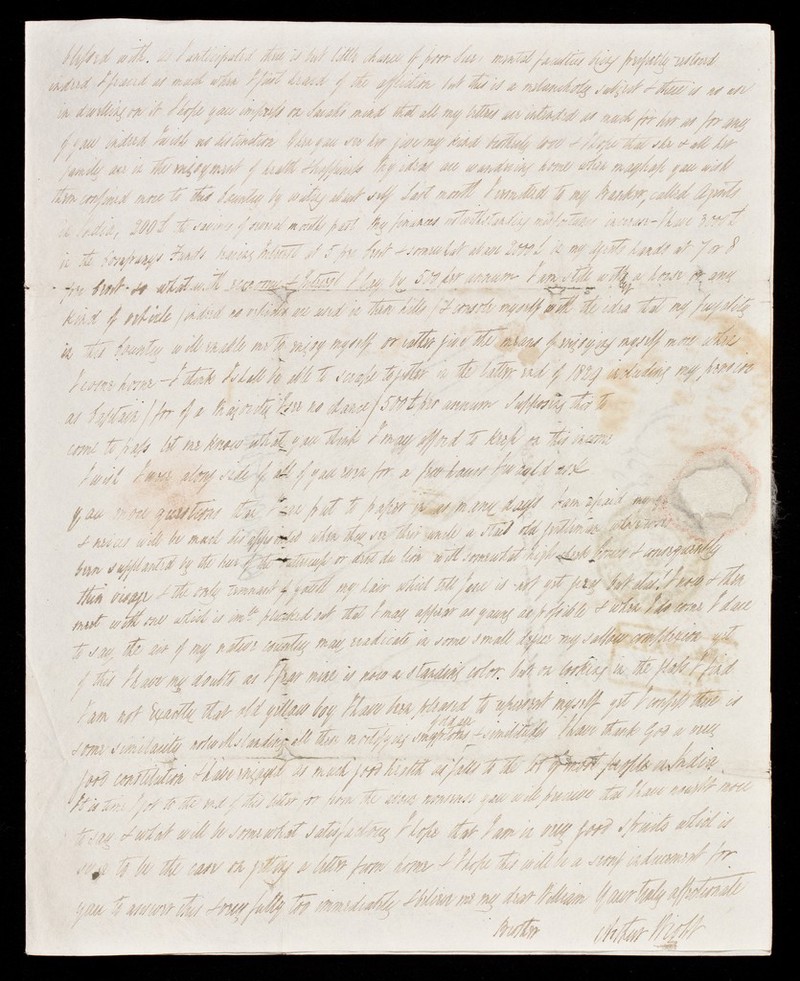 with. As I anticipated there is but little chance of poor mental faculties being perfectly restored
indeed I feared as much when I first heard of the affliction but this is a melancholy subject & there is no use
in dwelling on it I hope you impress on mind that all my letters are intended as much for her as for any
of you indeed I wish no distinction when you see her give my kind brotherly love & I hope that she & all her
family are in the enjoyment of health & happiness My ideas are wandering home when mayhap you wish
them confined more to this Country by writing about self Last month I remitted to my Banker, called Agents
in India, 200£ the savings of several months past My finances notwithstanding increase - I have £
in the Companys Funds bearing Interest at 5 per Cent & somewhat above 2000£ in my Agents hands at 7 or 8
per Cent so what with & Interest I lay by 500 per annum I am still with a horse or any
kind of vehicle (indeed no vehicles are used in these hills) & console myself with the idea that my frugality
in this Country will enable me to enjoy myself or rather give the means of enjoying myself more when
I come home - I think I shall be able to scrape together in the latter end of 1829 including my pension
as Captain (for of a Majority I see no chance) 500£ per annum Supposing this to
come to pass let me know what you think I may afford to keep on this income
I wish I were along side of all of you even for a few hours I would ask
you more questions than I can put to paper in as many days I am afraid my
& nieces will be much disappointed when they see their uncle a staid old gentleman
been supplanted by the hue of the or dent du lion with somewhat high cheek bones & consequently
thin visage & the only remnant of youth my hair which till June is not yet grey but alas! I now & then
meet with one which is immy. plucked out that I may appear as young as possible & when I do come I dare
to say the air of my native country may eradicate in some small degree my sallow complexion yet
of this I have my doubts as I fear mine is now a standard color. but on looking in the glass I find
I am not exactly that old yellow boy I have been pleased to represent myself yet I confess there is
some similarity notwithstanding all these mortifying symptoms & similitudes I have thank God a very
good constitution & have enjoyed as much good health as falls to the lot of most people in India
It is time I got to the end of this letter for from the above nonsense you will perceive that I have nought more
to say & what will be somewhat satisfactory I hope that I am in very good spirits which is
sure to be the case on getting a letter from home & I hope this will be a strong inducement for
you to answer this & very fully too immediately & believe me my dear William Your truly affectionate
Brother Arthur Wight